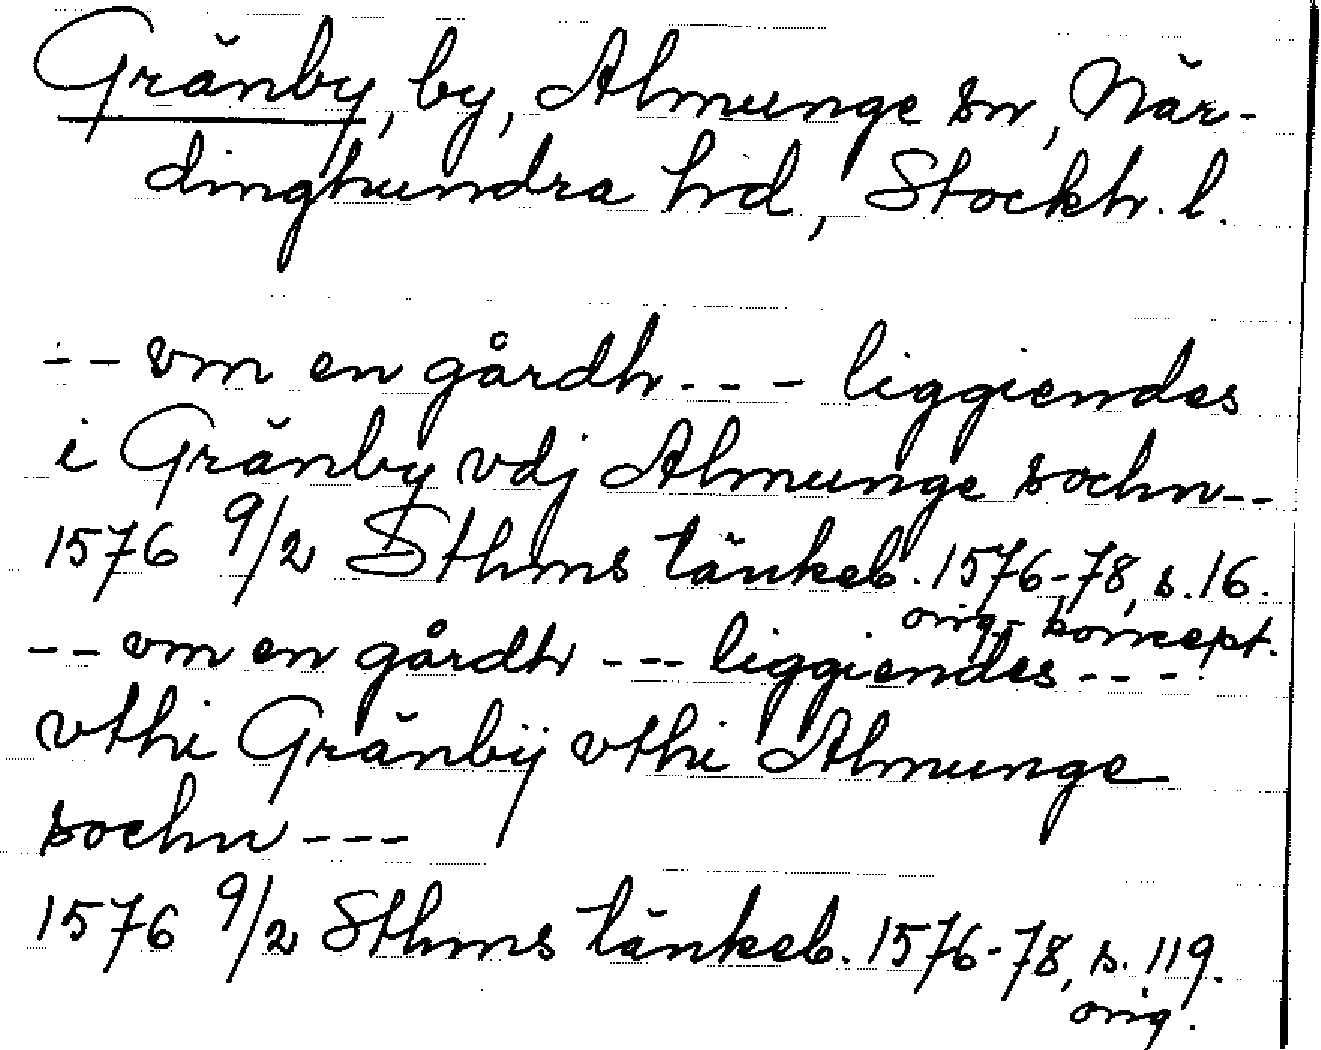 Gränby, by, Almunge sn, När-
dinghundra hd, Stockh. l.
-- vm en gårdh --- liggiendes
i Gränby vdj Almunge sochn--
1576 9/2 Sthms tänkeb. 1576-78, s. 16.
orig.-koncept.
-- vm en gårdh --- liggiendes ----
vthi Gränbÿ vthi Almunge
sochn ---
1576 9/2 Sthms tänkeb. 1576-78, s. 119.
orig.